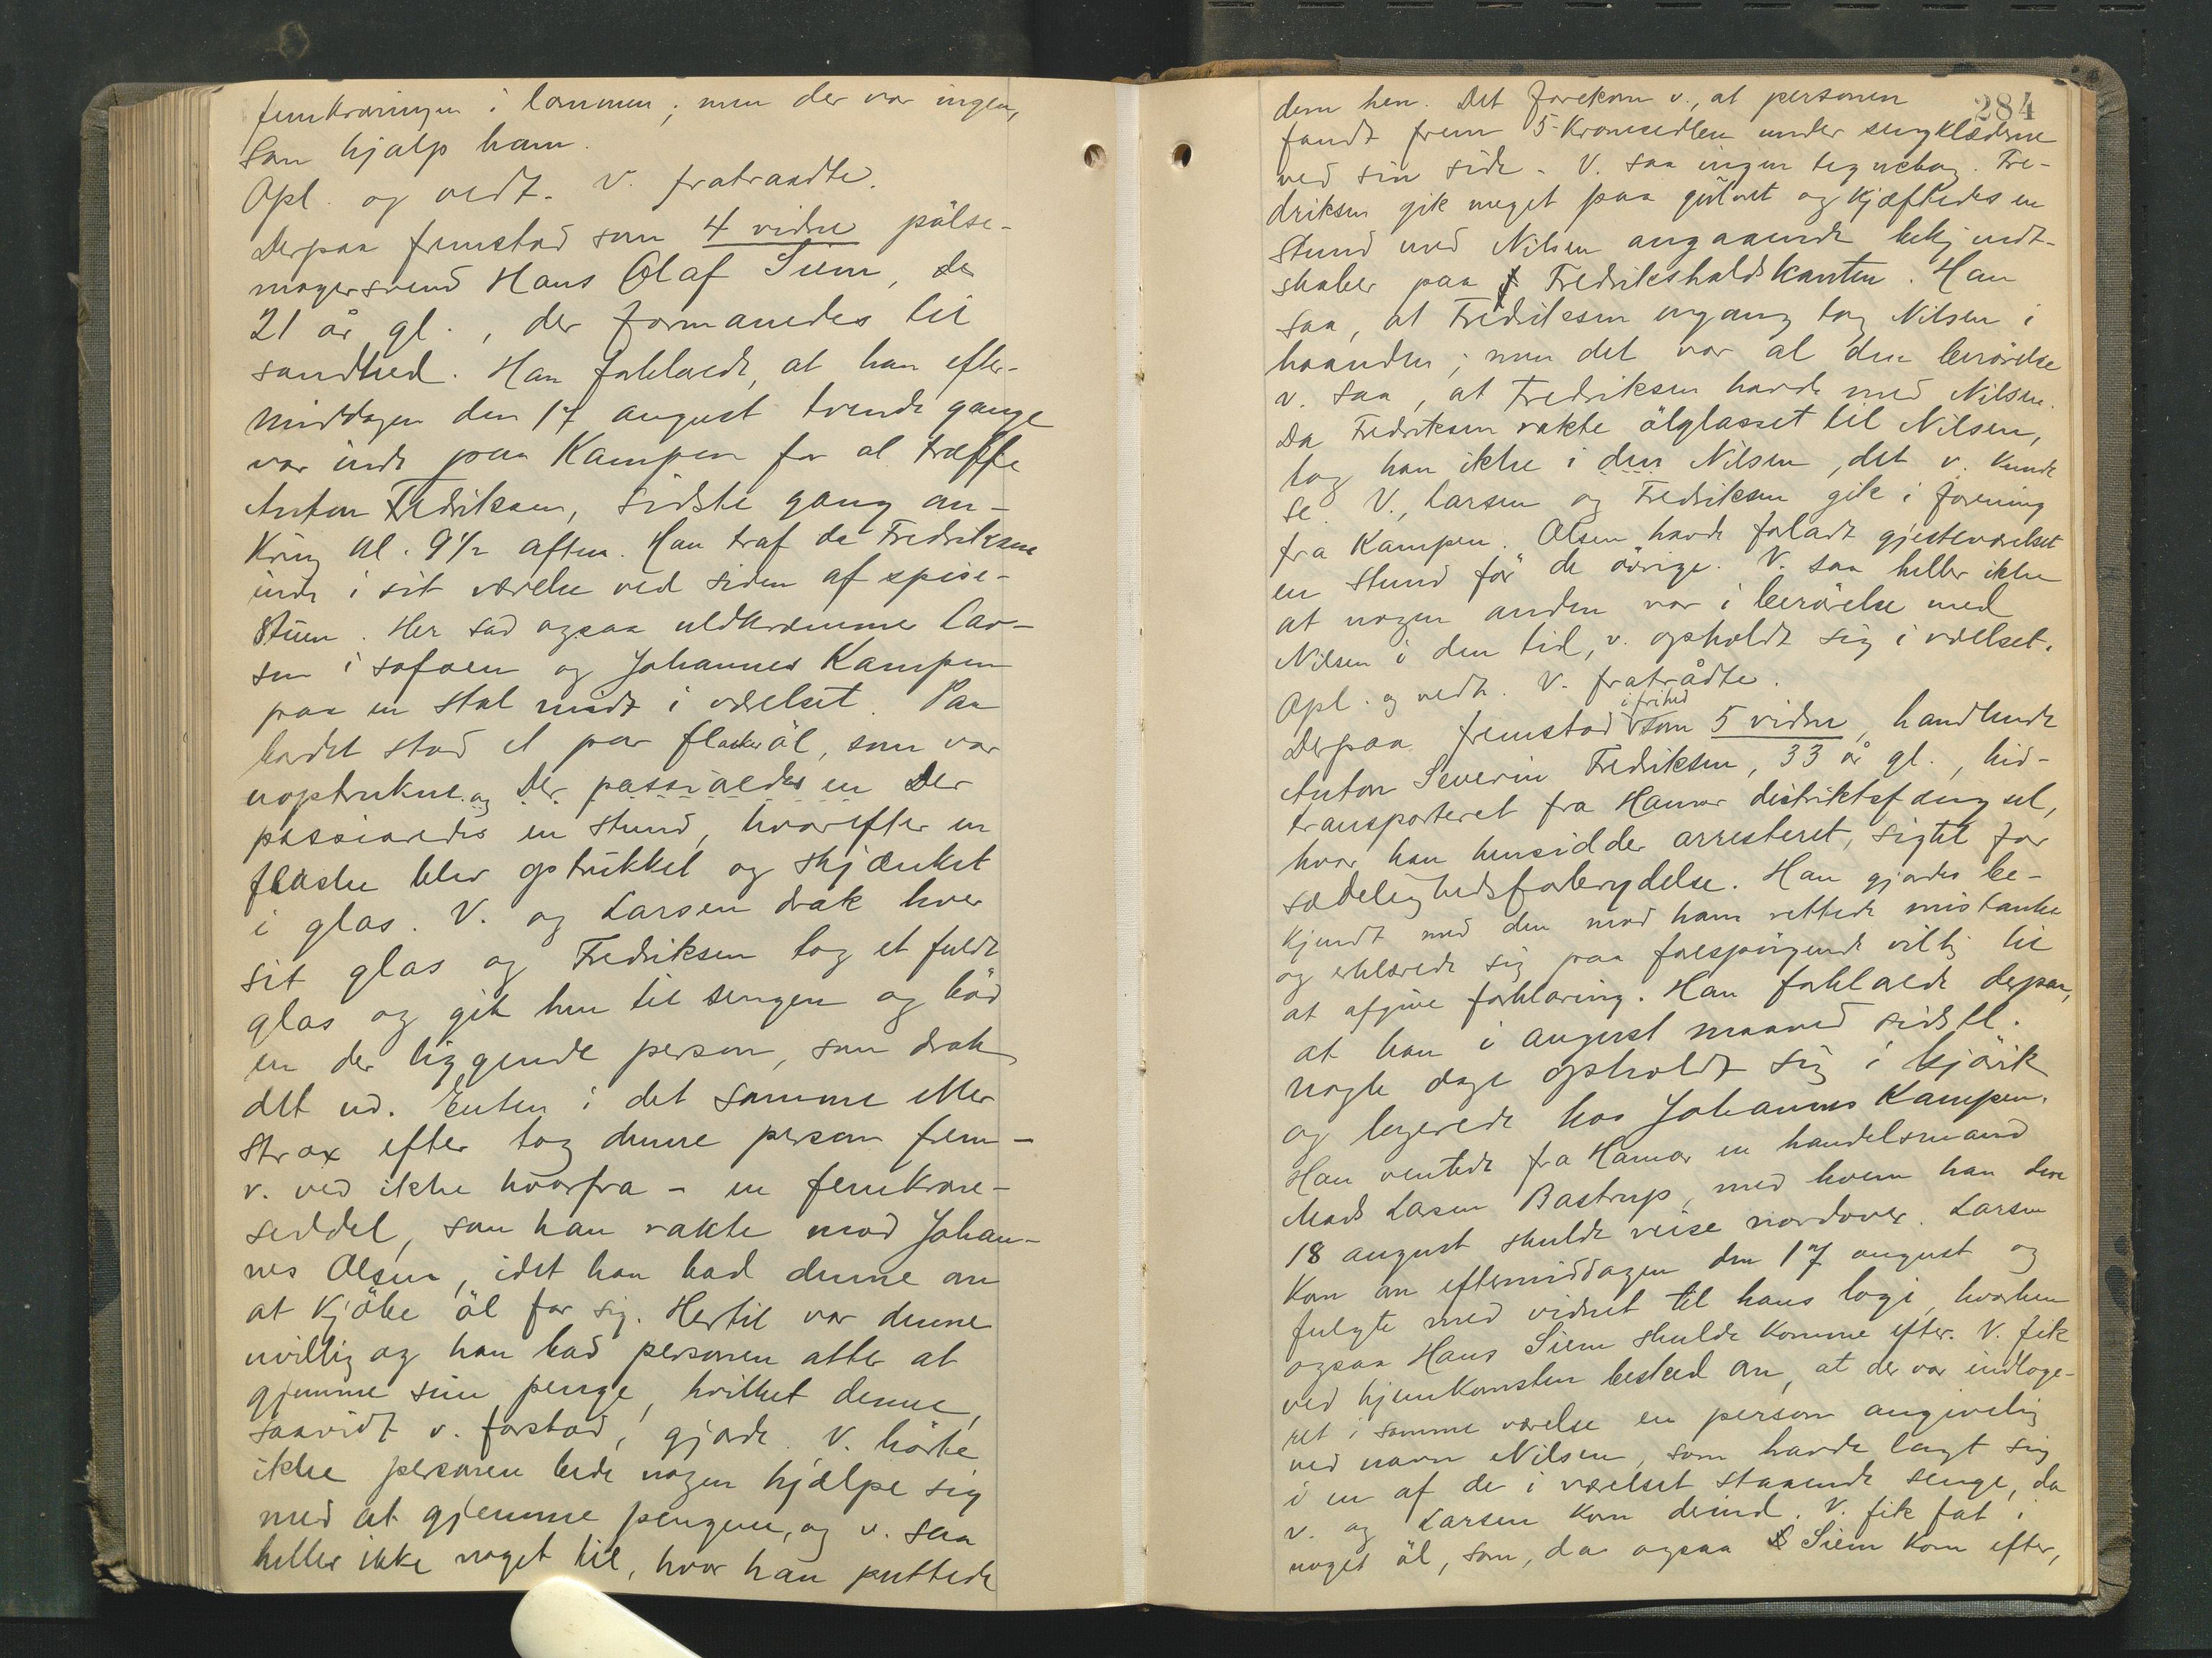 femkroningen i lommen; men der var ingen,
som hjalp ham.
Opl. og vedt. V. fratraadte.
Derpaa fremstod som 4 vidne pölse-
magersvend Hans Olaf Siem,
21 år gl., der formanedes til
sandhed. Han forklarede, at han efter-
middagen den 17 august tvende gange
var inde paa Kampen for at træffe
Anton Fredriksen, sidste gang om-
kring kl. 9½ aften. Han traf da Fredriksen
inde i sit værelse ved siden af spise-
stuen. Her sad ogsaa uldkræmmer Lar-
sen i sofaen og Johannes Kampen
paa en stol midt i værelset. Paa
bordet stod et par flasker öl, som var
uoptrukne og Der passiaredes en Der
passiaredes en stund, hvorefter en
flaske blev optrukket og skjænket
i glas. V. og Larsen drak hver
sit glas og Fredriksen tog et fuldt
glas og gik hen til sengen og böd
en der liggende person, som drak
det ud. Enten i det samme eller
strax efter tog denne person frem -
v. ved ikke hvorfra - en femkrone-
seddel, som han rakte mod Johan-
nes Olsen, idet han bad denne om
at kjöbe öl for sig. Hertil var denne
uvillig og han bad personen atter at
gjemme sine penge, hvilket denne,
saavidt v. forstod, gjorde. V. hörte
ikke personen bede nogen hjælpe sig
med at gjemme pengene, og v. saa
heller ikke noget til, hvor han puttede
284
dem hen. Det forekom v., at personen
fandt frem 5-kronesedlen under sengklæderne
ved sin side. V. saa ingen tegnebog. Fre-
driksen gik meget paa gulvet og kjæftedes en
stund med Nilsen angaaende bekjendt-
skaber paa f Fredrikshaldskanten. Han
saa, at Fredriksen engang tog Nilsen i
haanden; men det var al den berörelse
v. saa, at Fredriksen havde med Nilsen.
Da Fredriksen rakte ölglasset til Nilsen,
tog han ikke i den Nilsen, det v. kunde
se. V., Larsen og Fredriksen gik i forening
fra Kampen. Olsen havde forladt gjesteværelset
en stund för de övrige. V. saa heller ikke
at nogen anden var i berörelse med
Nilsen i den tid, v. opholdt sig i værelset.
Opl. og vedt. V. fratrådte.
i frihed
Derpaa fremstod som 5 vidne, handlende
Anton Severin Fredriksen, 33 år gl., hid-
transporteret fra Hamar distriktsfængsel,
hvor han hensidder arresteret, sigtet for
sædelighedsforbrydelse. Han gjordes be-
kjendt med den mod ham rettede mistanke
og erklærede sig paa forespörgende villig til
at afgive forklaring. Han forklarede derpaa,
at han i august maaned sidstl.
nogle dage opholdt sig i Gjövik
og logerede hos Johannes Kampen.
Han ventede fra Hamar en handelsmand
Mads Larsen Bastrup, med hvem han den
18 august skulde reise nordover. Larsen
kom an eftermiddagen den 17 august og
fulgte med vidnet til hans logi, hvorhen
ogsaa Hans Siem skulde komme efter. V. fik
ved hjemkomsten besked om, at der var indloge-
ret i samme værelse en person angivelig
ved navn Nilsen, som havde lagt sig
i en af de i værelset staaende senge, da
v. og Larsen kom derind. V. fik fat i
noget öl, som, da ogsaa S Siem kom efter,